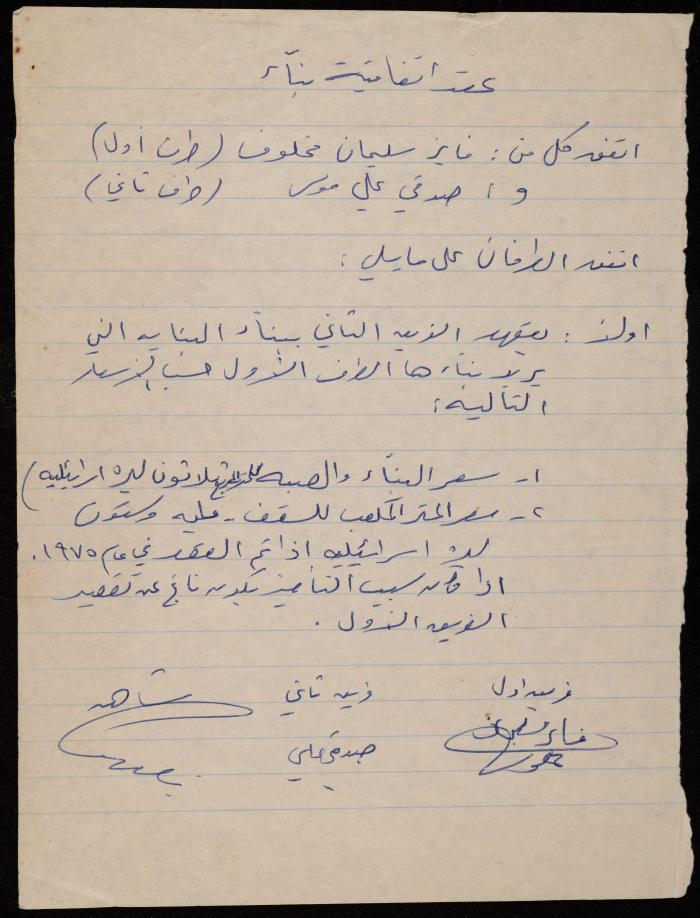 عقد اتفاقية بناء
اتفق كل من : فايز سليمان مخلوف (طرف أول)
و : صدقي علي موسى (طرف ثاني)
اتفق الطرفان على ما يلي :
اولاً : يتعهد الفريق الثاني ببناء البنايه التي
يريد بناءها الطرف الأول حسب الأسعار
التاليه :
١- سعر البناء والصبه ثلاثون ليره اسرائيليه)
٢- سعر المتر المكعب للسقف - وستون
ليره اسرائيليه اذا تم العقد في عام ١٩٧٥.
اذا كان سبب التأخير يكون ناتج عن تقصير
الفريق الأول .
فريق اول
فريق ثاني
شاهد
صدقي علي